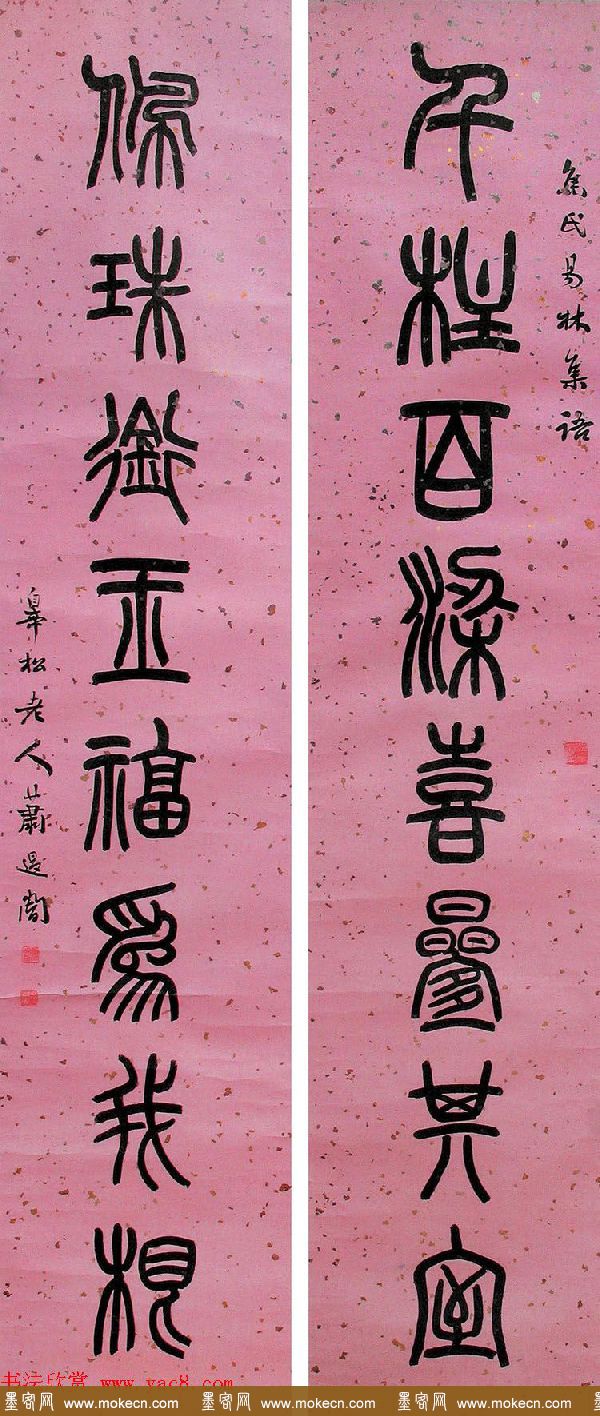 焦氏易林集語
千柱百梁喜疊其室
保珠銜玉福為我根
皋松老人蕭退闇
书法欣赏 www.yac8.com
墨客网 www.mokecn.com 墨客网 www.mokecn.com 墨客网 www.mokecn.com